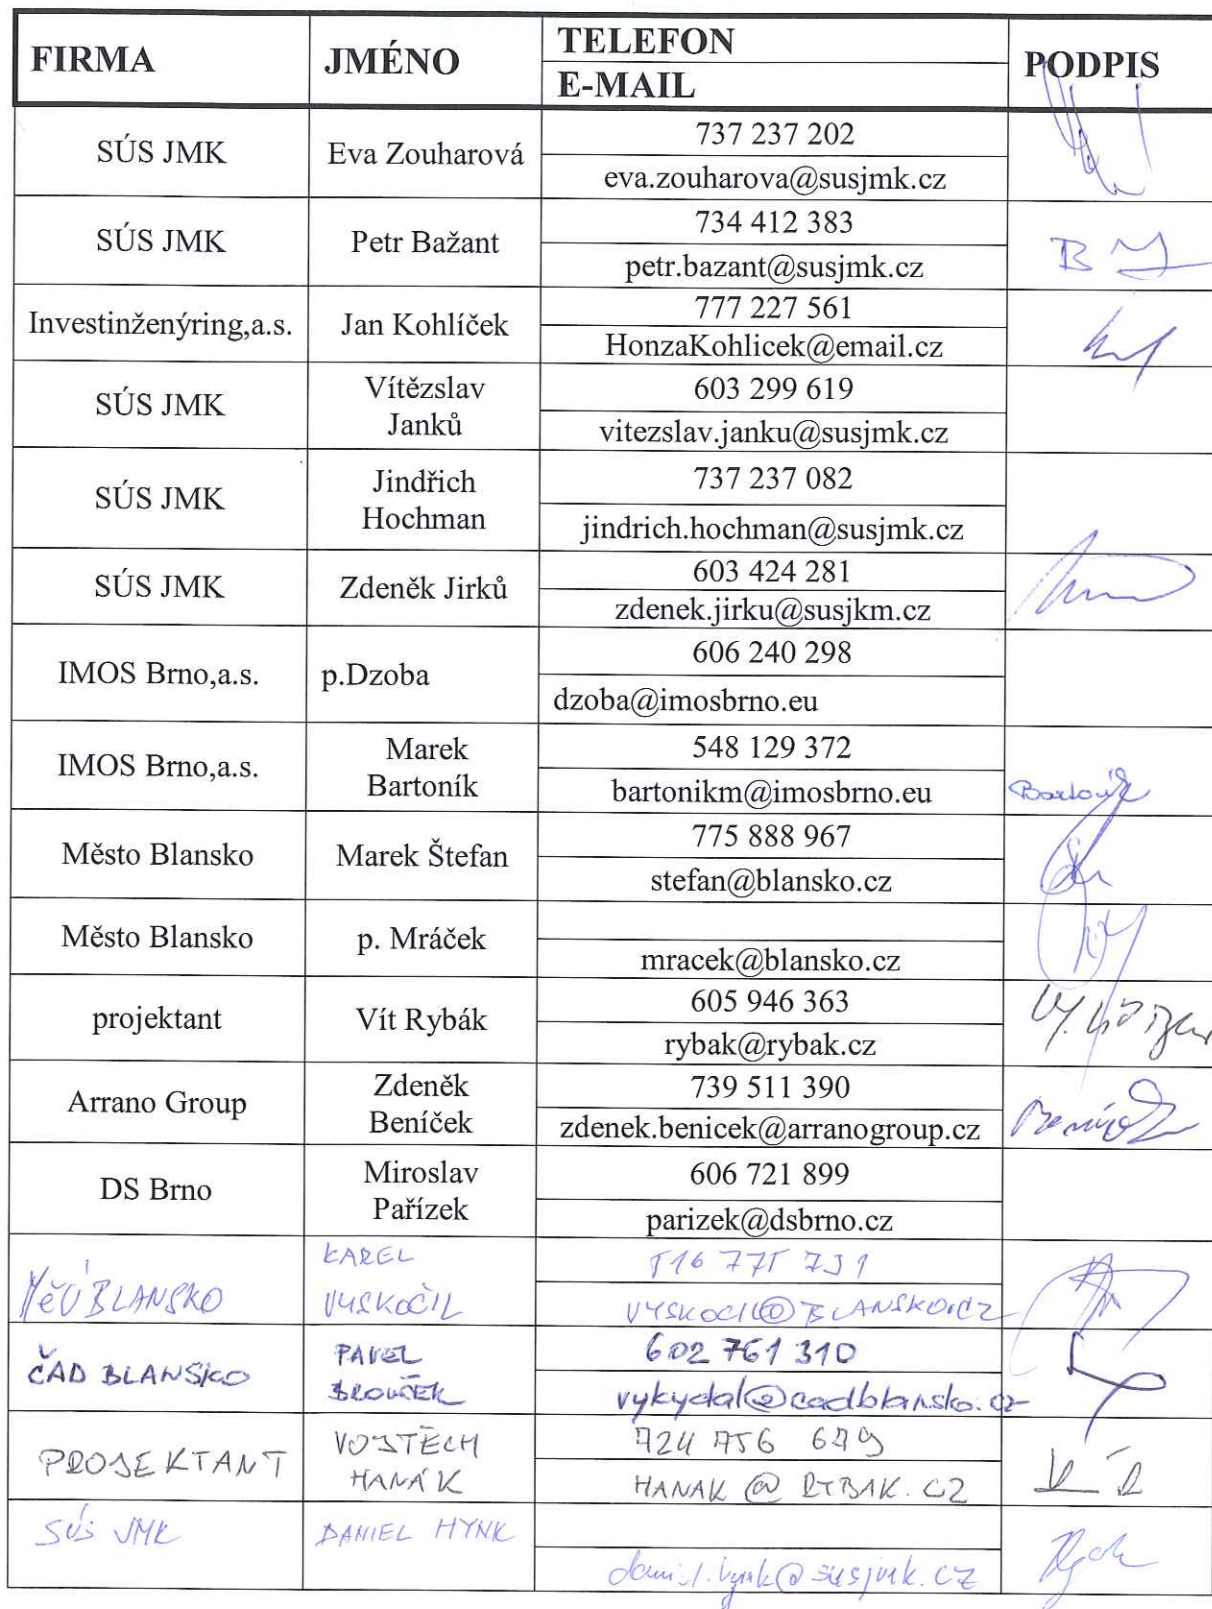 FIRMA
JMÉNO
TELEFON
E-MAIL
PODPIS
SÚS JMK
Eva Zouharová
737 237 202
eva.zouharova@susjmk.cz
SÚS JMK
Petr Bažant
734 412 383
petr.bazant@susjmk.cz
Investinženýring,a.s.
Jan Kohlíček
777 227 561
HonzaKohlicek@email.cz
SÚS JMK
Vítězslav
Janků
603 299 619
vitezslav.janku@susjmk.cz
SÚS JMK
Jindřich
Hochman
737 237 082
jindrich.hochman@susjmk.cz
SÚS JMK
Zdeněk Jirků
603 424 281
zdenek.jirku@susjkm.cz
IMOS Brno,a.s.
p.Dzoba
606 240 298
dzoba@imosbrno.eu
IMOS Brno,a.s.
Marek
Bartoník
548 129 372
bartonikm@imosbrno.eu
Bartoník
Město Blansko
Marek Štefan
775 888 967
stefan@blansko.cz
Město Blansko
p. Mráček
mracek@blansko.cz
projektant
Vít Rybák
605 946 363
rybak@rybak.cz
Arrano Group
Zdeněk
Beníček
739 511 390
zdenek.benicek@arranogroup.cz
DS Brno
Miroslav
Pařízek
606 721 899
parizek@dsbrno.cz
MěÚ BLANSKO
KAREL
VYSKOČIL
516 775 731
VYSKOCIL@BLANSKO.CZ
ČAD BLANSKO
PAVEL
BROUČEK
602 761 310
vykydal@cadblansko.cz
PROJEKTANT
VOJTĚCH
HANÁK
724 756 679
HANAK@RYBAK.CZ
SÚS JMK
DANIEL HYNK
daniel.hynk@susjmk.cz